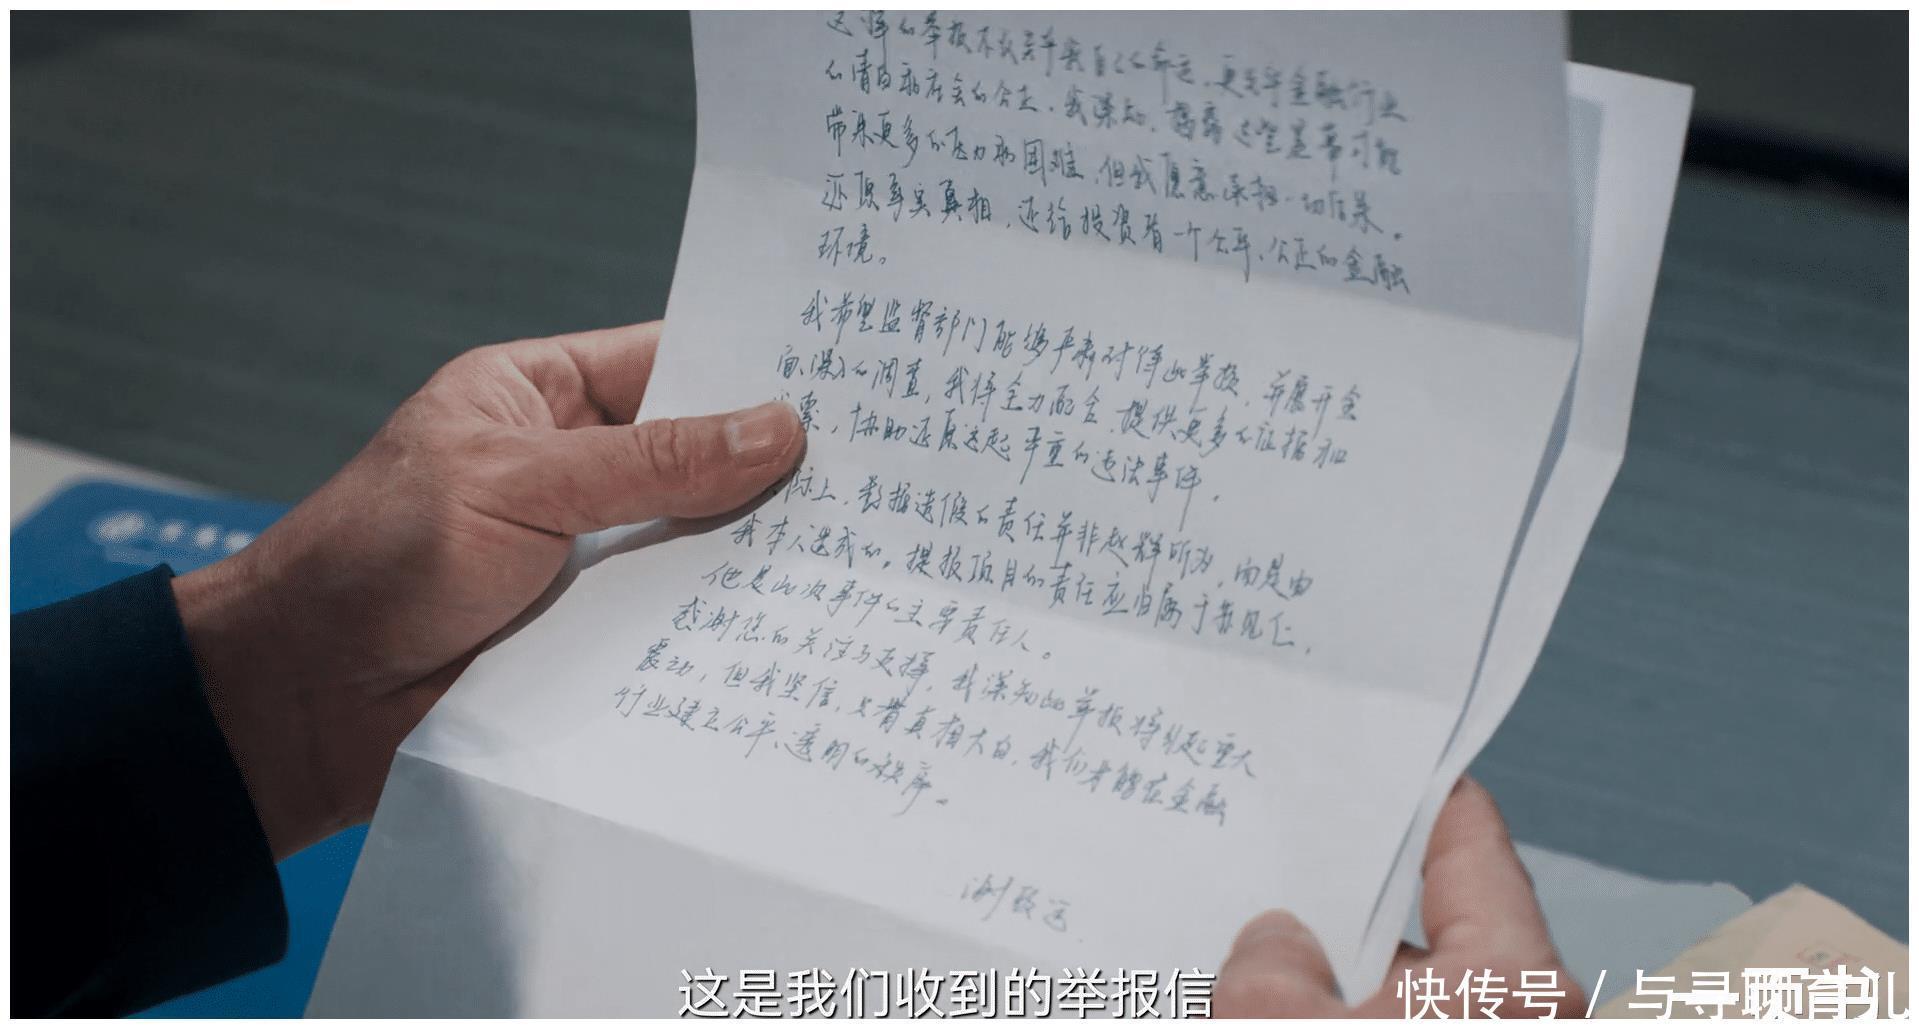 这样的举报不仅关乎我自己的命运，更关乎金融行业
的清白和社会的公正。我深知，揭露这些黑幕可能
带来更多的压力和困难，但我愿意承担一切后果。
还原事实真相，还给投资者一个公平、公正的金融
环境。
我希望监督部门能够严肃对待此举报，并展开全
面、深入的调查，我将全力配合，提供更多的证据和
，协助还原这起严重的违法事件。
际上，数据造假的责任并非赵辉所为，而是由
我本人造成的。提报项目的责任应归属于苏见仁，
他是此次事件的主要责任人。
感谢您的关注与支持，我深知此举报将引起重大
震动，但我坚信，只有真相大白，我们才能在金融
行业建立公平、透明的秩序。
谢致远
这是我们收到的举报信
快传号 / 与寻